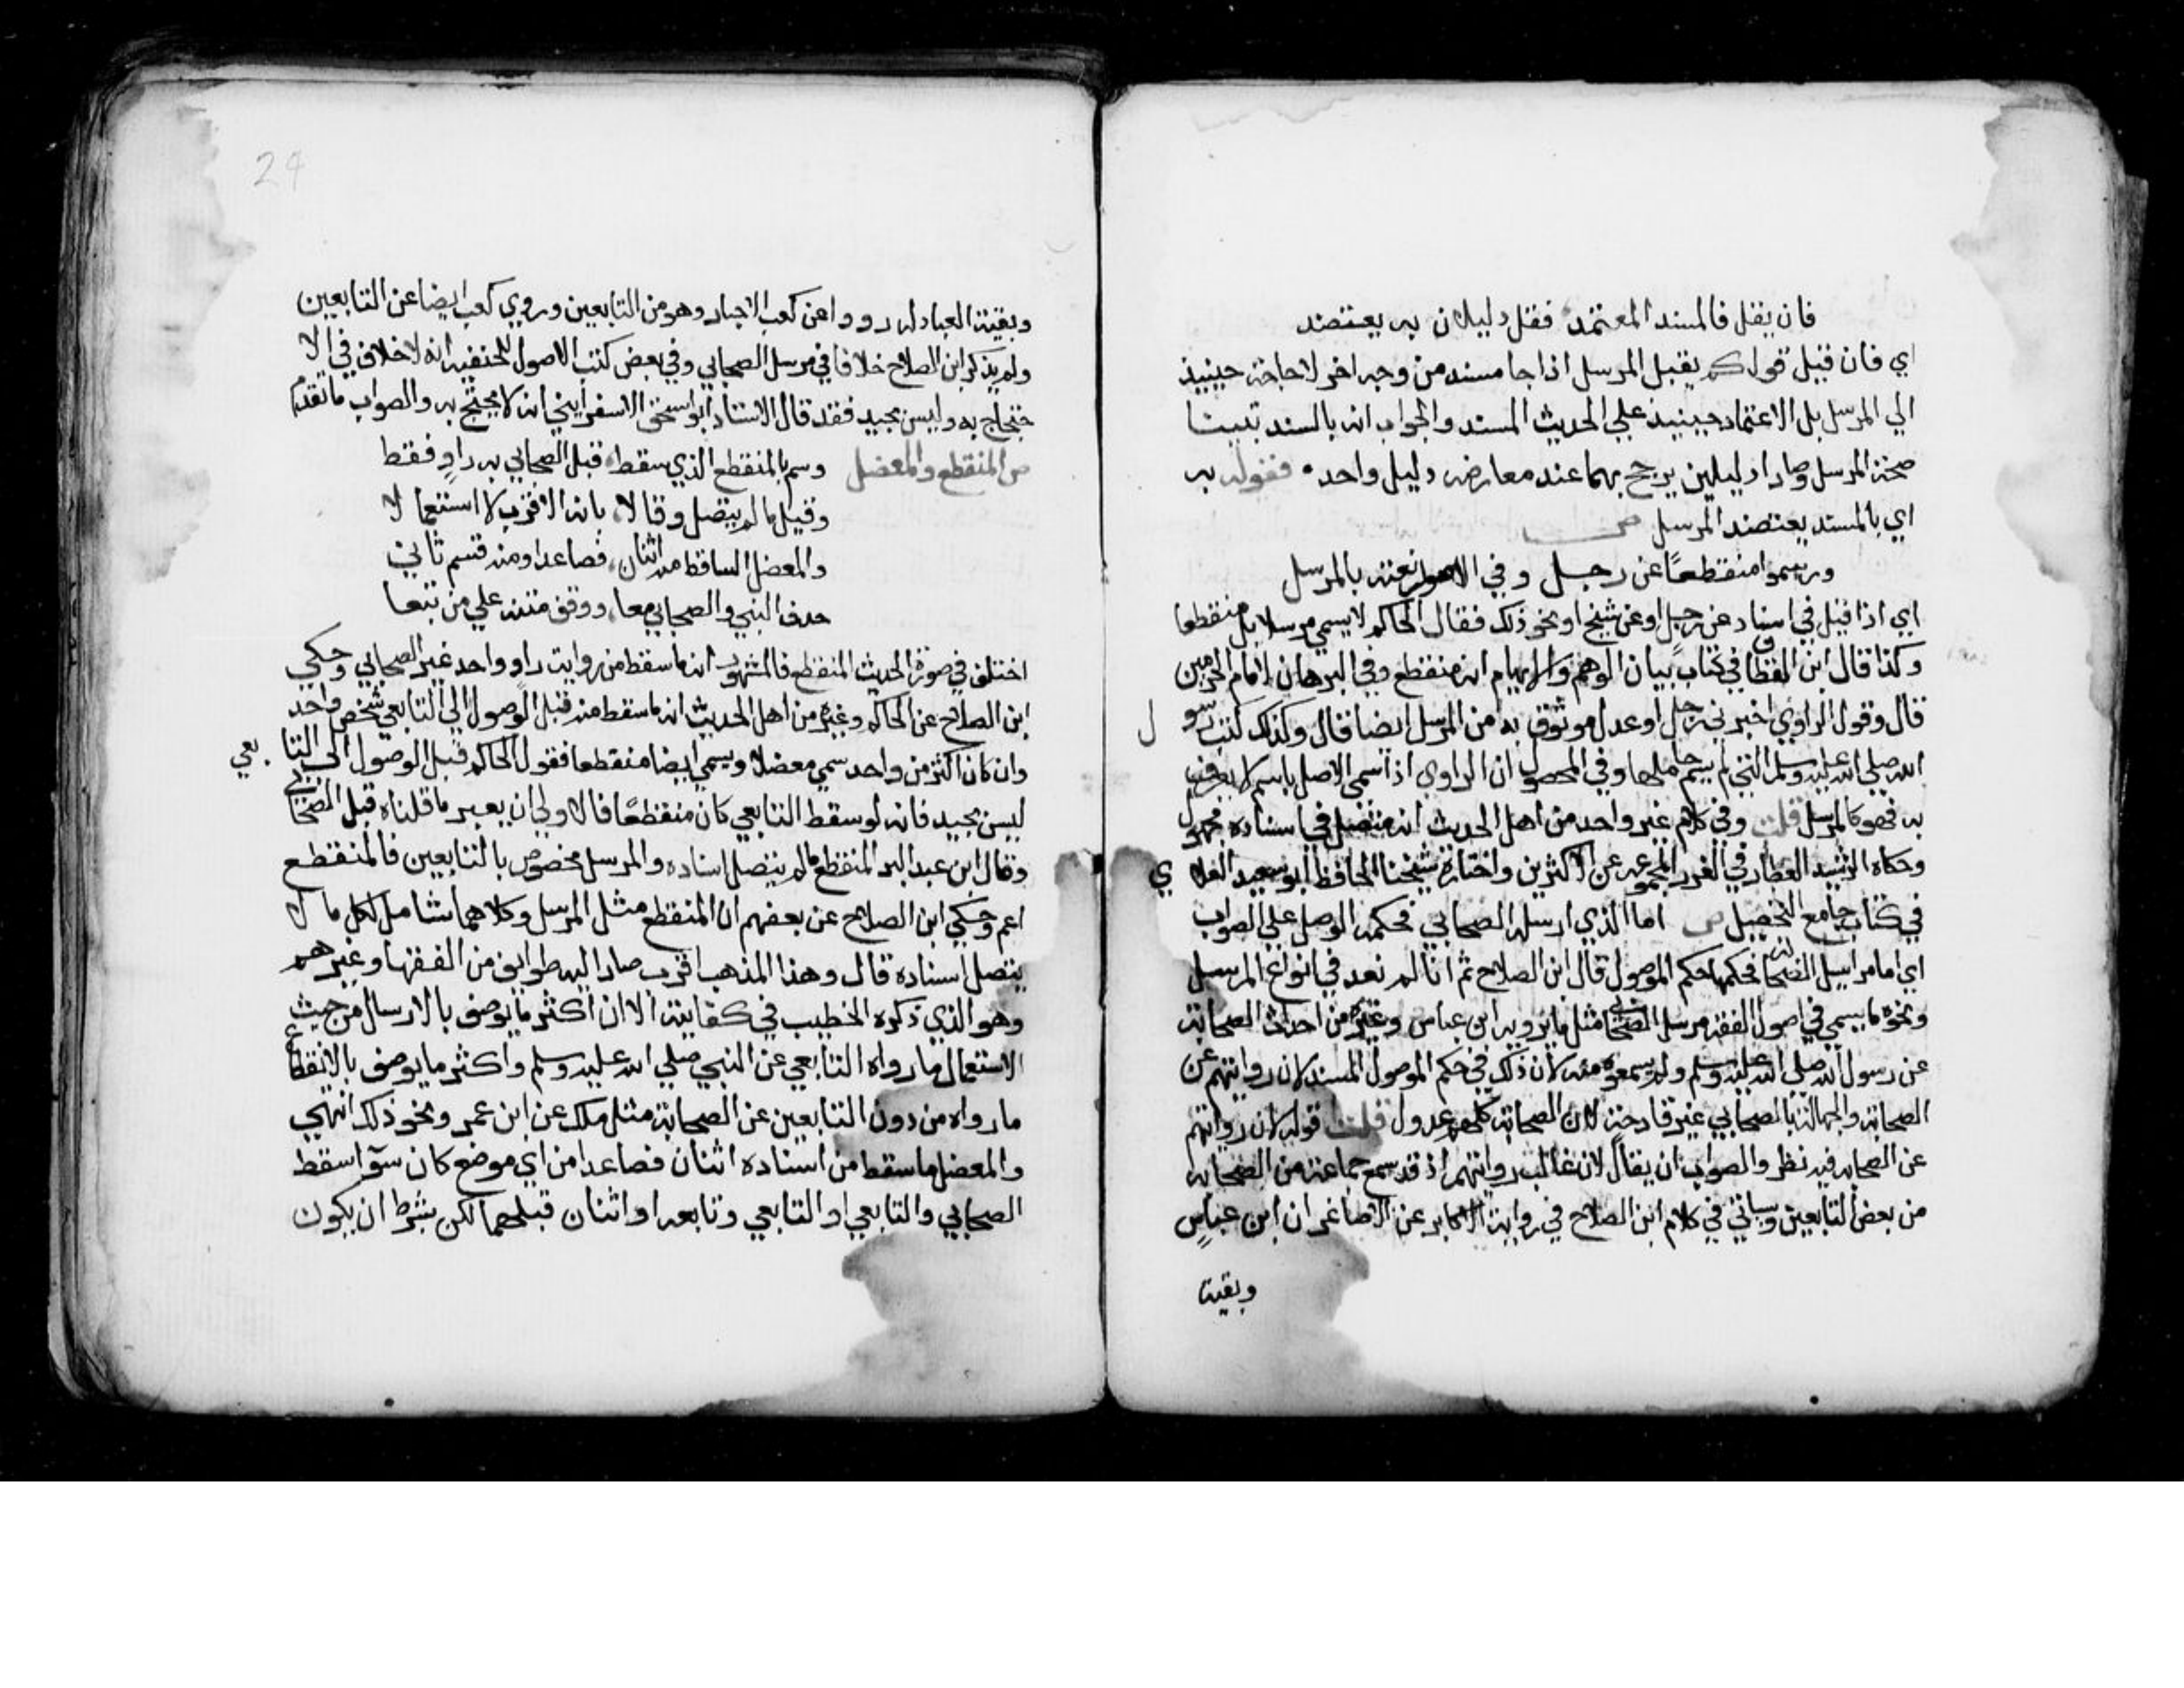 فان يقل فالمسند المعتمد فقل دليلان به يعتضد
اي فان قيل قولكم يقبل المرسل اذا جا مسند من وجه اخر لا حاجة حينيذ
الي المرسل بل الاعتماد حينيذ علي الحديث المسند والجواب انه بالسند تبينا
صحة المرسل وصارا دليلين يرجح بهما عند معارضه دليل واحد فقوله به
اي بالمسند يعتضد المرسل ص
ورسموا منقطعًا عن رجل وفي الاصول نعته بالمرسل
اي اذا قيل في اسناد عن رجل او عن شيخ او نحو ذلك فقال الحاكم لا يسمي مرسلا بل منقطعا
وكذا قال ابن القطان في كتاب بيان الوهم والايهام انه منقطع وفي البرهان لامام الحرمين
قال وقول الراوي اخبرني رجل او عدل موثوق به من المرسل ايضا قال وكذلك كتب رسول
الله صلي الله عليه وسلم التي لم يسم حاملها وفي المحصول ان الراوي اذا سمي الاصل باسم لا يعرف
به فهو كالمرسل قلت وفي كلام غير واحد من اهل الحديث انه متصل في اسناده مجهول
وحكاه الرشيد العطار في الغرر المجموعه عن الاكثرين واختاره شيخنا الحافظ ابو سعيد العلاي
في كتاب جامع التحصيل ص اما الذي ارسله الصحابي فحكمه الوصل علي الصواب
اي اما مراسيل الصحابة فحكمها حكم الموصول قال ابن الصلاح ثم انا لم نعد في انواع المرسل
ونحوه ما يسمي في اصول الفقه مرسل الصحابي مثل ما يرويه ابن عباس وغيره من احداث الصحابة
عن رسول الله صلي الله عليه وسلم ولم يسمعوه منه لان ذلك في حكم الموصول المسند لان روايتهم عن
الصحابة والجهالة بالصحابي غير قادحة لان الصحابة كلهم عدول قلت قوله لان روايتهم
عن الصحابه فيه نظر والصواب ان يقال لان غالب روايتهم اذ قد سمع جماعة من الصحابه
من بعض التابعين وسياتي في كلام ابن الصلاح في رواية الاكابر عن الاصاغر ان ابن عباس
وبقية
24
وبقية العبادله رووا عن كعب الاحبار وهو من التابعين وروي كعب ايضا عن التابعين
ولم يذكر ابن الصلاح خلافا في مرسل الصحابي وفي بعض كتب الاصول للحنفيه انه لا خلاف في الا
حتجاج به وليس بجيد فقد قال الاستاد ابو اسحق الاسفرايني انه لا يحتج به والصواب ما تقدم
ص المنقطع والمعضل وسم بالمنقطع الذي سقط قبل الصحابي به راوٍ فقط
وقيل ما لم يتصل وقالا بانه الاقرب لا استعمالا
والمعضل الساقط منه اثنان فصاعدا ومنه قسم ثاني
حذف النبي والصحابي معا ووقف متنه علي من تبعا
اختلف في صورة الحديث المنقطع فالمشهور انه ما سقط من رواية راو واحد غير الصحابي وحكي
ابن الصلاح عن الحاكم وغيره من اهل الحديث انه ما سقط منه قبل الوصول الي التابعي شخص واحد
وان كان اكثر من واحد سمي معضلا ويسمي ايضا منقطعا فقول الحاكم قبل الوصول الي التابعي
ليس بجيد فانه لو سقط التابعي كان منقطعًا فالاولي ان يعبر ما قلناه قبل الصحابي
وقال ابن عبد البر المنقطع ما لم يتصل اسناده والمرسل مخصوص بالتابعين فالمنقطع
اعم وحكي ابن الصلاح عن بعضهم ان المنقطع مثل المرسل وكلاهما شامل لكل ما لا
يتصل اسناده قال وهذا المذهب اقرب صار اليه طوايف من الفقها وغيرهم
وهو الذي ذكره الخطيب في كفايته الا ان اكثر ما يوصف بالارسال من حيث
الاستعمال ما رواه التابعي عن النبي صلي الله عليه وسلم واكثر ما يوصف بالانقطاع
ما رواه من دون التابعين عن الصحابة مثل ملك عن ابن عمر ونحو ذلك انتهي
والمعضل ما سقط من اسناده اثنان فصاعدا من اي موضع كان سوآ سقط
الصحابي والتابعي او التابعي وتابعه او اثنان قبلهما لكن بشرط ان يكون